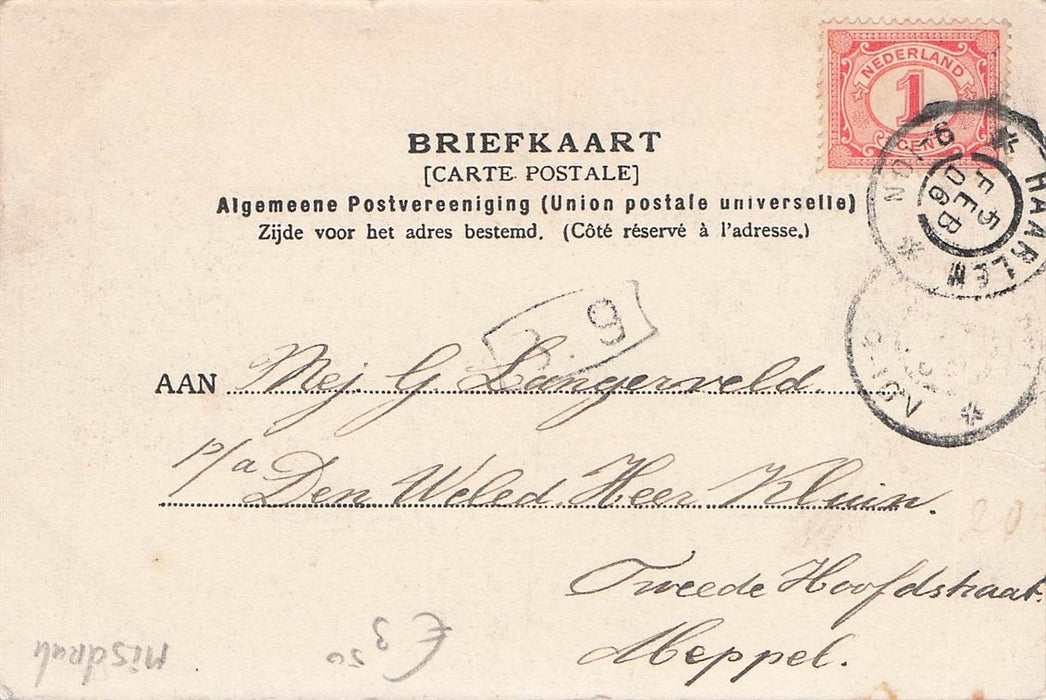 NEDERLAND
1
CENT
BRIEFKAART
[CARTE POSTALE]
Algemeene Postvereeniging (Union postale universelle)
Zijde voor het adres bestemd. (Côté réservé à l'adresse.)
HAARLEM
5 FEB 06
9
AAN Mej G. Langerveld.
p/a Den Weled. Heer Kluin.
20
Tweede Hoofdstraat.
Meppel.
€ 3 50
Misdruk